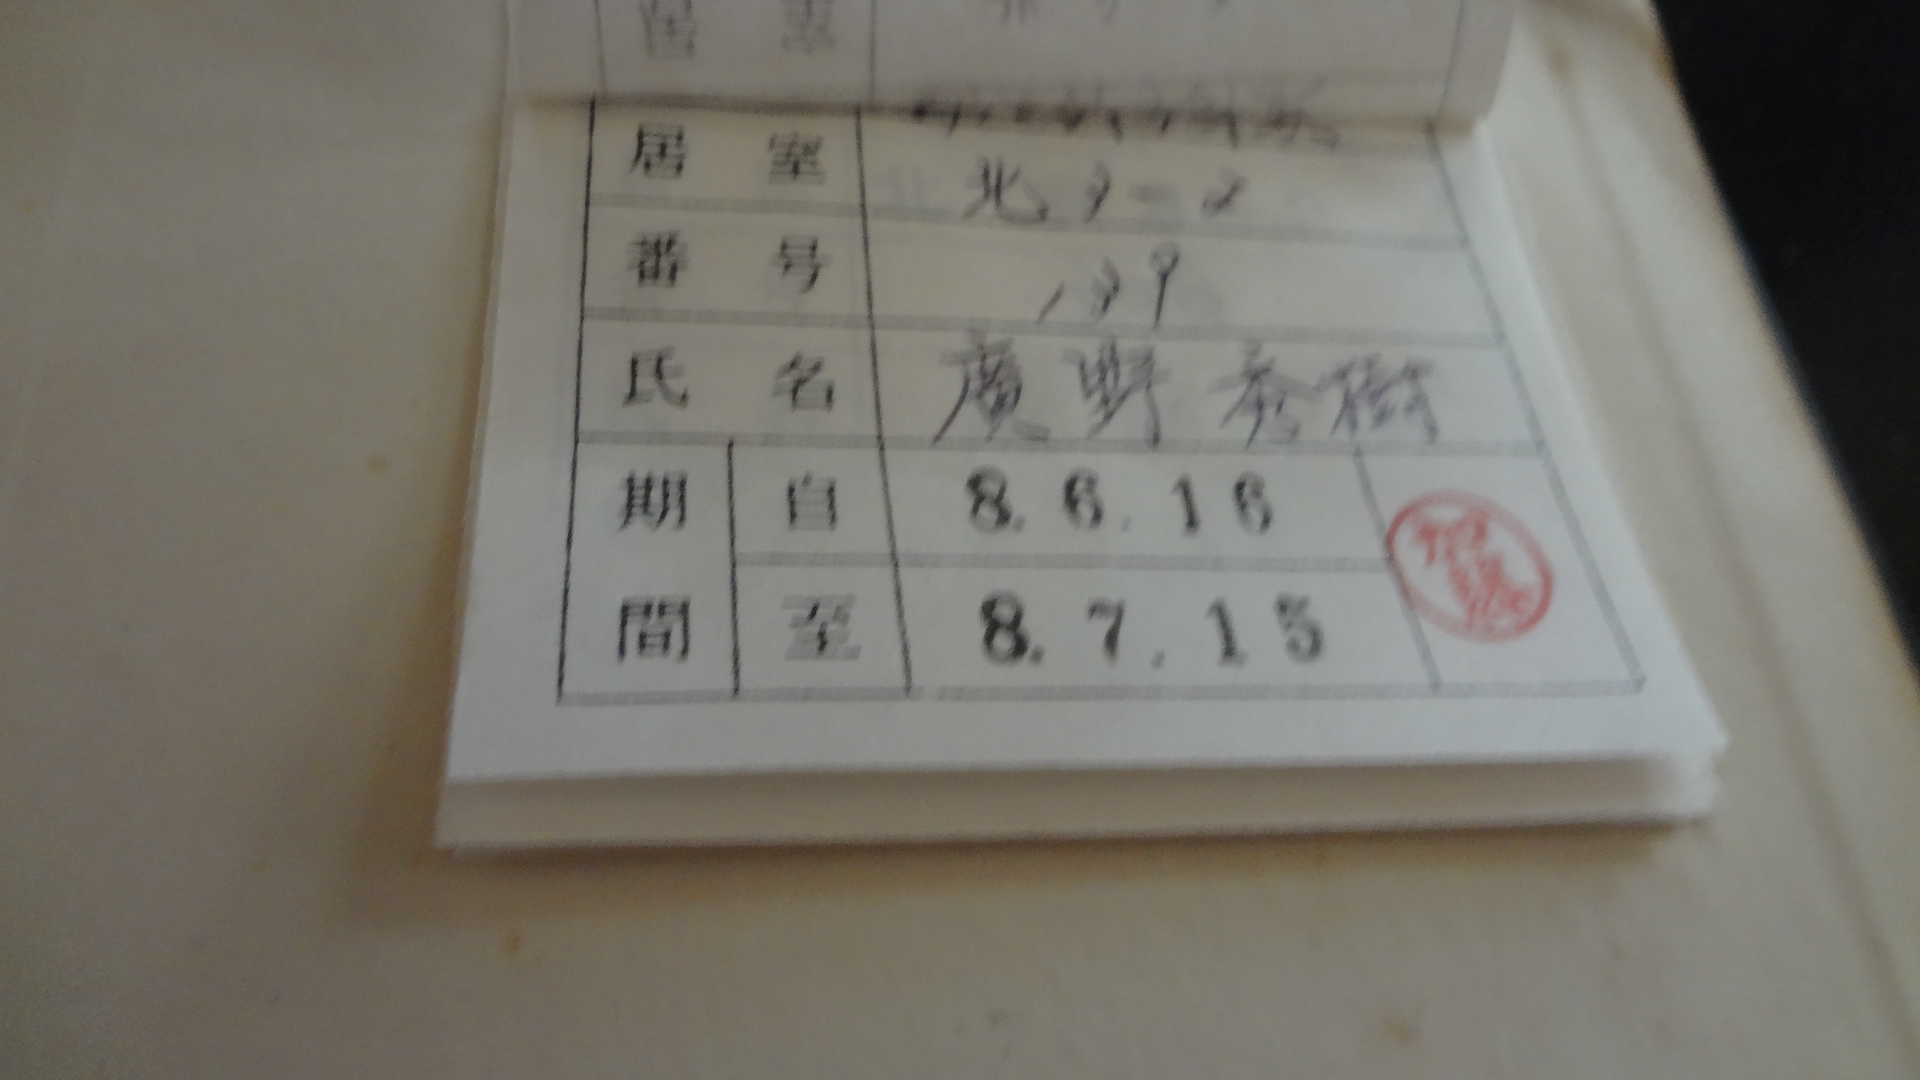 居室
居室 北3-2
番号 139
氏名 廣野秀樹
期間 自 8.6.16
至 8.7.15